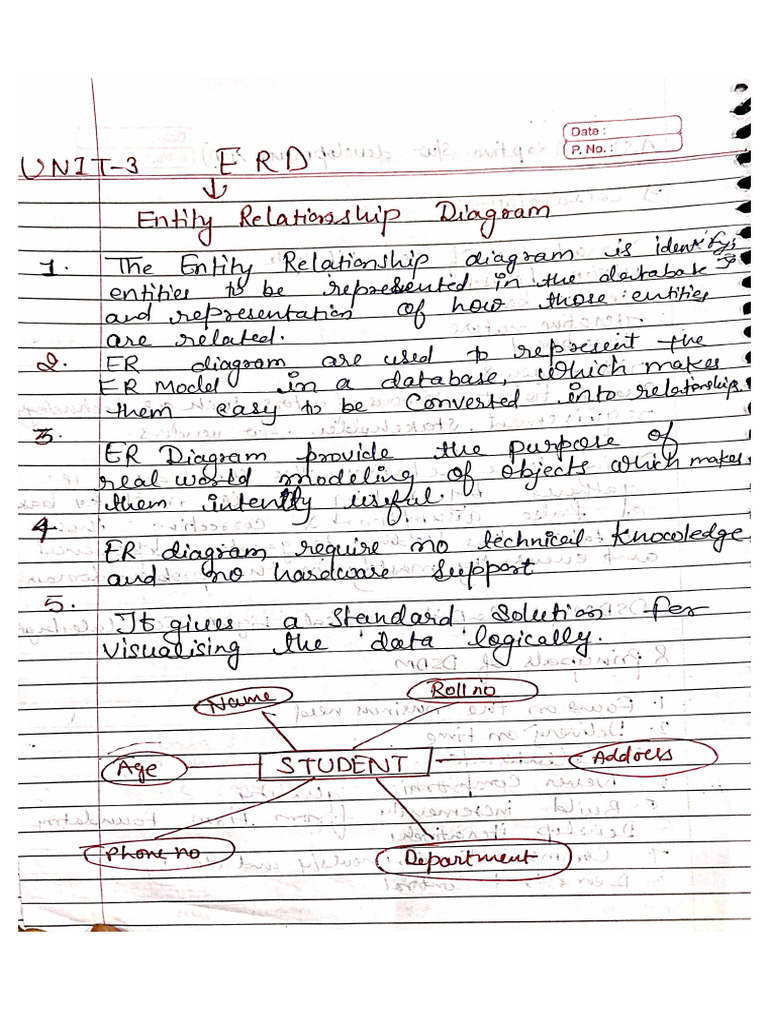 Date :
P. No. :
UNIT-3 ERD
Entity Relationship Diagram
1. The Entity Relationship diagram is identify
entities to be represented in the database
and representation of how those entities
are related.
2. ER diagram are used to represent the
ER Model in a database, which makes
them easy to be Converted into relationship
3.
ER Diagram provide the purpose of
real world modeling of objects which makes
them intently useful.
4
ER diagram require no technical knowledge
and no hardware support
5.
It gives a standard solution for
visualising the data logically.
Name Roll no
Age STUDENT Address
Phone no Department